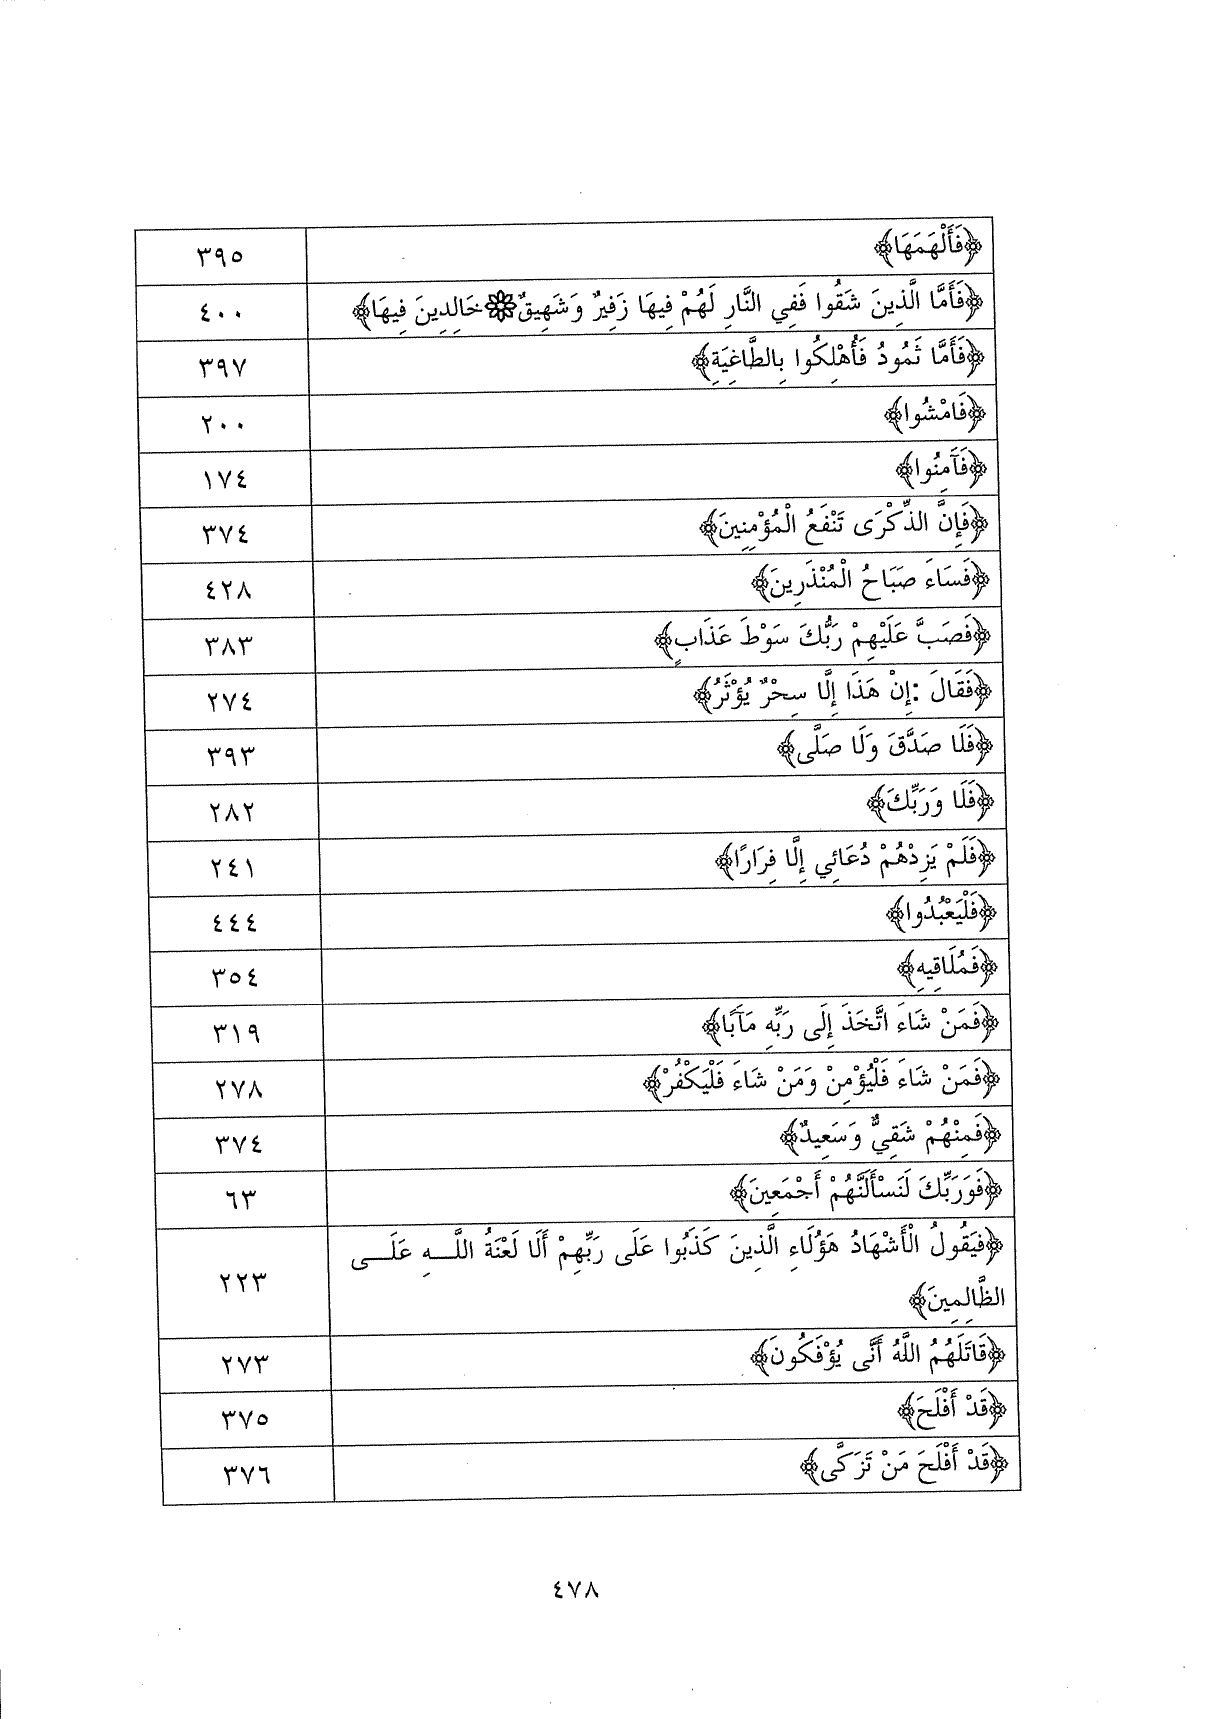 ﴿فَأَلْهَمَهَا﴾ ٣٩٥
﴿فَأَمَّا الَّذِينَ شَقُوا فَفِي النَّارِ لَهُمْ فِيهَا زَفِيرٌ وَشَهِيقٌ۞خَالِدِينَ فِيهَا﴾ ٤٠٠
﴿فَأَمَّا ثَمُودُ فَأُهْلِكُوا بِالطَّاغِيَةِ﴾ ٣٩٧
﴿فَامْشُوا﴾ ٢٠٠
﴿فَآمِنُوا﴾ ١٧٤
﴿فَإِنَّ الذِّكْرَى تَنْفَعُ الْمُؤْمِنِينَ﴾ ٣٧٤
﴿فَسَاءَ صَبَاحُ الْمُنْذَرِينَ﴾ ٤٢٨
﴿فَصَبَّ عَلَيْهِمْ رَبُّكَ سَوْطَ عَذَابٍ﴾ ٣٨٣
﴿فَقَالَ :إِنْ هَذَا إِلَّا سِحْرٌ يُؤْثَرُ﴾ ٢٧٤
﴿فَلَا صَدَّقَ وَلَا صَلَّى﴾ ٣٩٣
﴿فَلَا وَرَبِّكَ﴾ ٢٨٢
﴿فَلَمْ يَزِدْهُمْ دُعَائِي إِلَّا فِرَارًا﴾ ٢٤١
﴿فَلْيَعْبُدُوا﴾ ٤٤٤
﴿فَمُلَاقِيهِ﴾ ٣٥٤
﴿فَمَنْ شَاءَ اتَّخَذَ إِلَى رَبِّهِ مَآبًا﴾ ٣١٩
﴿فَمَنْ شَاءَ فَلْيُؤْمِنْ وَمَنْ شَاءَ فَلْيَكْفُرْ﴾ ٢٧٨
﴿فَمِنْهُمْ شَقِيٌّ وَسَعِيدٌ﴾ ٣٧٤
﴿فَوَرَبِّكَ لَنَسْأَلَنَّهُمْ أَجْمَعِينَ﴾ ٦٣
﴿فَيَقُولُ الْأَشْهَادُ هَؤُلَاءِ الَّذِينَ كَذَبُوا عَلَى رَبِّهِمْ أَلَا لَعْنَةُ اللَّـــهِ عَلَـــى
الظَّالِمِينَ﴾ ٢٢٣
﴿قَاتَلَهُمُ اللَّهُ أَنَّى يُؤْفَكُونَ﴾ ٢٧٣
﴿قَدْ أَفْلَحَ﴾ ٣٧٥
﴿قَدْ أَفْلَحَ مَنْ تَزَكَّى﴾ ٣٧٦
٤٧٨